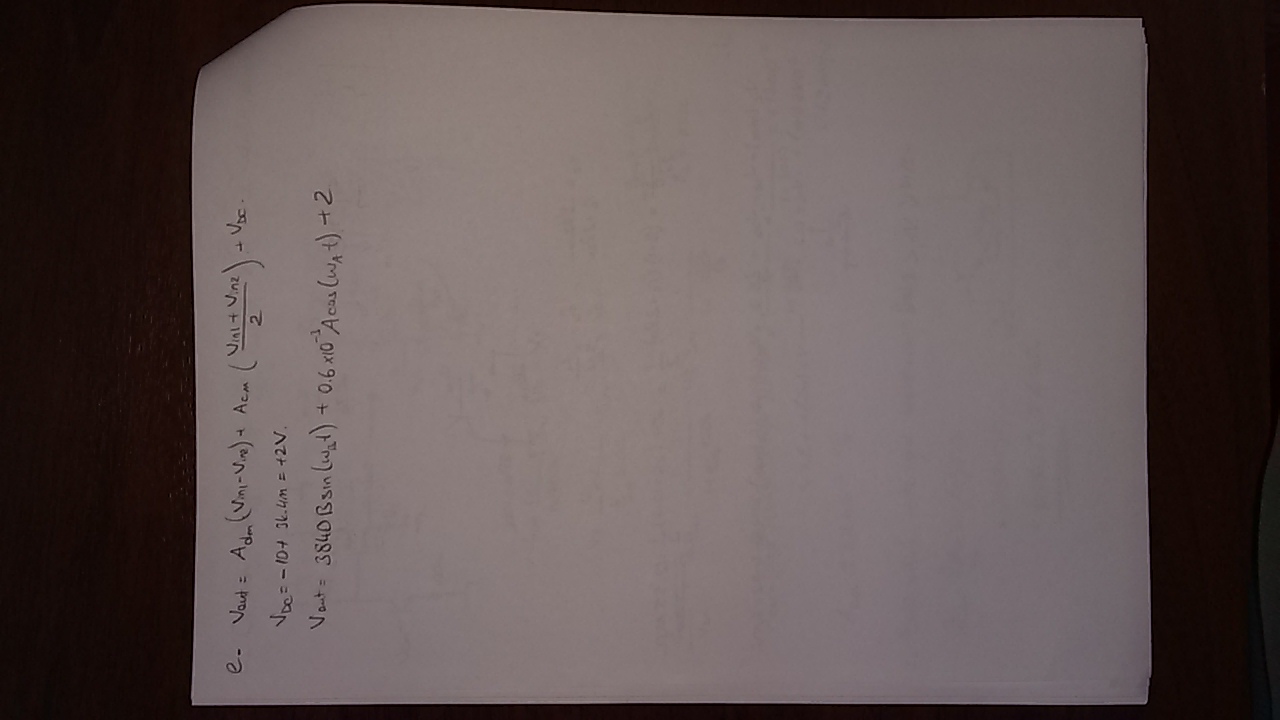 e- Vout = Adm (Vin1 - Vin2) + Acm ( (Vin1 + Vin2) / 2 ) + VDC.
VDC = -10 + 3k.4m = +2V.
Vout = 3840 B sin (ωBt) + 0.6 x 10⁻³ A cos (ωAt) + 2